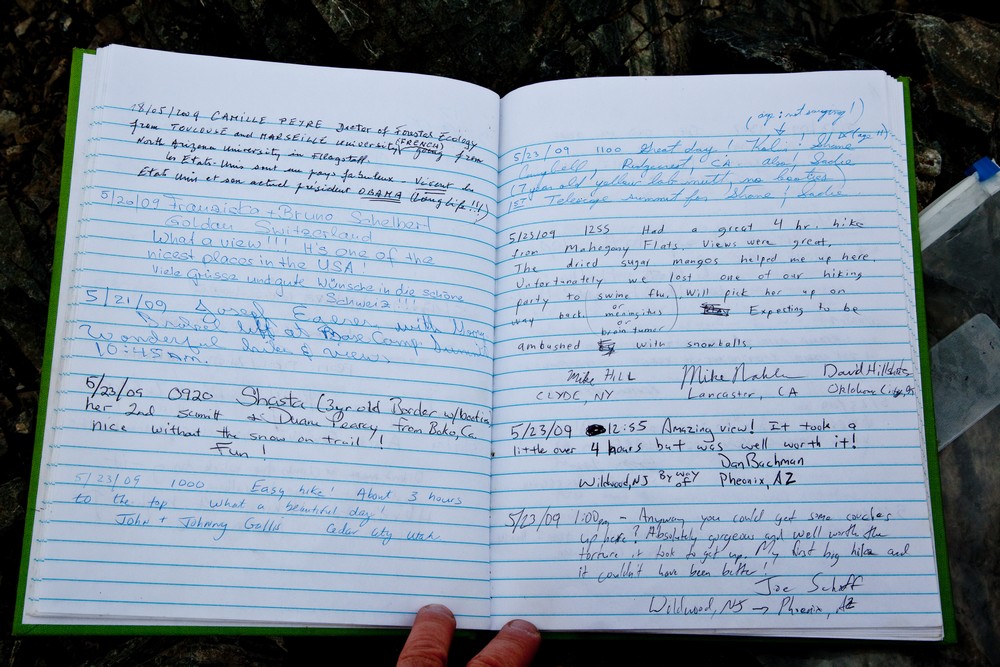 18/05/2009 CAMILLE PEYRE Doctor of Forestal Ecology
from TOULOUSE and MARSEILLE University (FRENCH) going from
North Arizona University in Flagstaff.
les Etats-Unis sont un pays fabuleux. Vivent les
Etats Unis et son actuel président OBAMA (Long life!!!)
5/20/09 Franziska + Bruno Schelbert
Goldau Switzerland
What a view!!! It's one of the
nicest places in the USA!
Viele Grüsse und gute Wünsche in die schöne
Schweiz!!!
5/21/09 Josef with
left at Base Camp
Wonderful hike & views
10:45 am
5/23/09 0920 Shasta (3yr old Border w/booties
her 2nd summit & Duane Pearcy from Boko, Ca
nice without the snow on trail!
Fun!
5/23/09 1000 Easy hike! About 3 hours
to the top what a beautiful day!
John + Johnny Galli Cedar City Utah
(age: not surgery!)
5/23/09 1100 Great day! Shane
Campbell! Ridgecrest CA also, Sadie
(7 year old yellow lab mutt no booties)
1st Telescope summit for Shane & Sadie
5/23/09 1255 Had a great 4 hr. hike
from Mahogany Flats. Views were great.
The dried sugar mangos helped me up here.
Unfortunately we lost one of our hiking
party to swine flu. Will pick her up on
or
way back. meningitis Expecting to be
or
brain tumor
ambushed with snowballs.
Mike Hill Mike David
CLYDE, NY Lancaster, CA Oklahoma City,
5/23/09 12:55 Amazing view! It took a
little over 4 hours but was well worth it!
Dan Bachman
Wildwood, NJ By way of Pheonix, AZ
5/23/09 1:00pm - Anyway you could get some couches
up here? Absolutely gorgeous and well worth the
torture it took to get up. My first big hike and
it couldn't have been better!
Joe Schaff
Wildwood, NJ → Phoenix, AZ